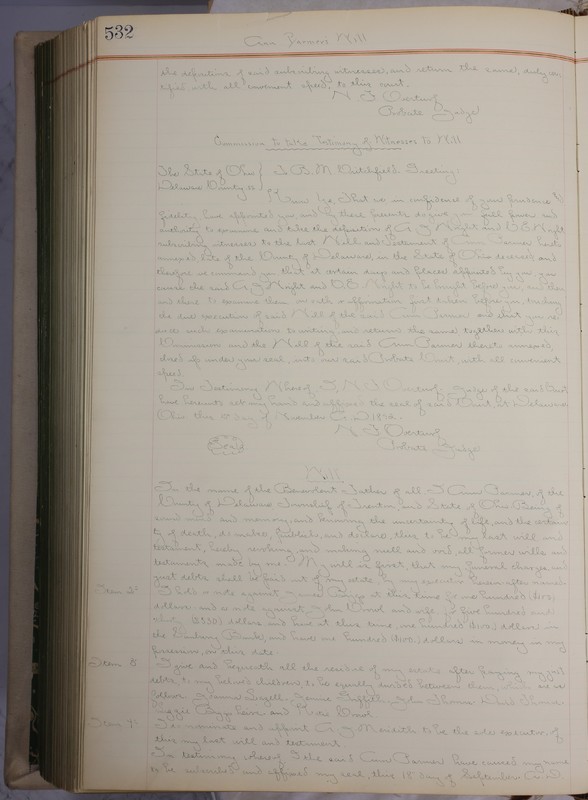 532
Ann Farmers Will
the deposition of said subscribing witnesses, and return the same, duly cer
tified with all convenient speed, to this court.
N. F. Overturf
Probate Judge
Commission to take Testimony of Witnesses to Will
The State of Ohio } To B. M. Greeting:
Delaware County, ss }
Know Ye, That we in confidence of your prudence &
fidelity, have appointed you, and by these presents do give you full power and
authority to examine and take the deposition of A. J. Wright and O. E. Wright
subscribing witnesses to the last Will and Testament of Ann Farmer hereto
annexed late of the County of Delaware, in the State of Ohio deceased, and
therefore we command you that at certain days and places appointed by you, you
cause the said A. J. Wright and O. E. Wright to be brought before you, and then
and there to examine them on oath or affirmation first taken before you touching
the due execution of said Will of the said Ann Farmer and that you re
duce such examinations to writing, and return the same together with this
Commission and the Will of the said Ann Farmer thereto annexed,
closed up under your seal, unto our said Probate Court, with all convenient
speed.
In Testimony Whereof I, N. F. Overturf, Judge of the said Court
have hereunto set my hand and affixed the seal of said Court, at Delaware
Ohio this day of November A.D.
N. F. Overturf
Seal Probate Judge
Will
In the name of the Benevolent Father of all I Ann Farmer, of the
County of Delaware Township of Trenton, and State of Ohio Being of
sound mind and memory, and knowing the uncertainty of life, and the certain
ty of death, do make, publish, and declare this to be my last will and
testament, hereby revoking and making null and void all former wills and
testaments made by me. My will is first, that my funeral charges and
just debts shall be paid out of my estate, by my executor herein after named
Item 2d I hold a note against at this time for one hundred ($100)
dollars and a note against John Wood and wife, for five hundred and
($550) dollars and have at this time, one hundred ($100) dollars in
the Sunbury Bank, and have one hundred ($100) dollars in money in my
possession, on this date
Item 3 I give and bequeath all the residue of my estate after paying my just
debts, to my beloved children, to be equally divided between them, which are as
follows, Thomas David Thomas
Lizzie and Wood
Item 4th I do nominate and appoint A. J. to be the sole executor, of
this my last will and testament.
In testimony whereof I the said Ann Farmer have caused my name
to be subscribed and affixed my seal, this 18 day of September A.D.